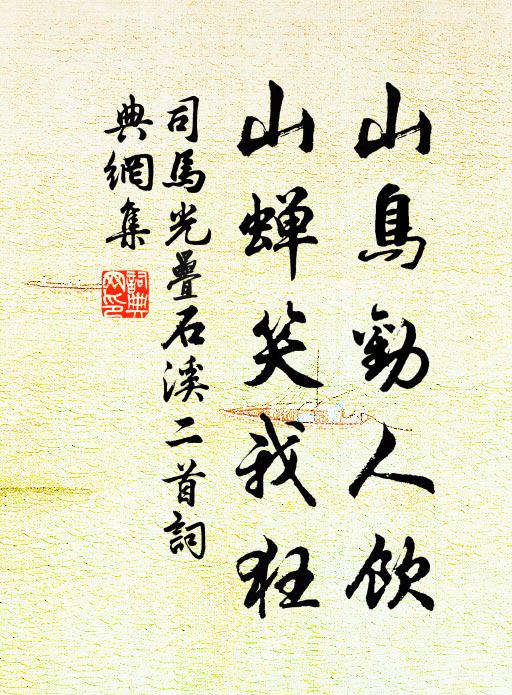 山鳥勸人飲
山蟬笑我狂
司馬光疊石溪二首詞
典網集
詞典網印